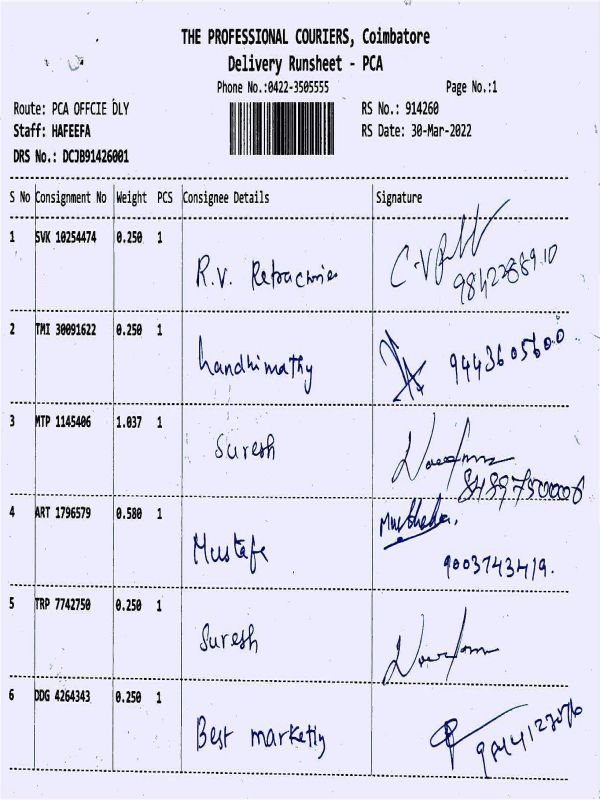 THE PROFESSIONAL COURIERS, Coimbatore
Delivery Runsheet - PCA
Phone No.:0422-3505555 Page No.:1
Route: PCA OFFCIE DLY RS No.: 914260
Staff: HAFEEFA RS Date: 30-Mar-2022
DRS No.: DCJB91426001
S No Consignment No Weight PCS Consignee Details Signature
1 SVK 10254474 0.250 1
R.V.
2 TMI 30091622 0.250 1
handhimathy 9443605600
3 MTP 1145406 1.037 1
Suresh
8489750006
4 ART 1796579 0.580 1
Mustafe
9003743419.
5 TRP 7742750 0.250 1
Suresh
6 DDG 4264343 0.250 1
Best marketing